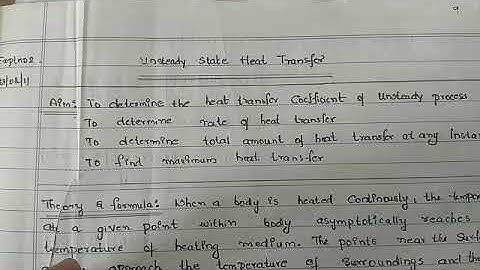 9
Expt no 2
Unsteady State Heat Transfer
Aim: To determine the heat transfer Coefficient of unsteady process
To determine rate of heat transfer
To determine total amount of heat transfer at any Insta
To find maximum heat transfer
Theory & formula: When a body is heated Continously, the tempera
at a given point within body asymptotically reaches
temperature of heating medium. The points near the Surf
approach the temperature of Surroundings and the